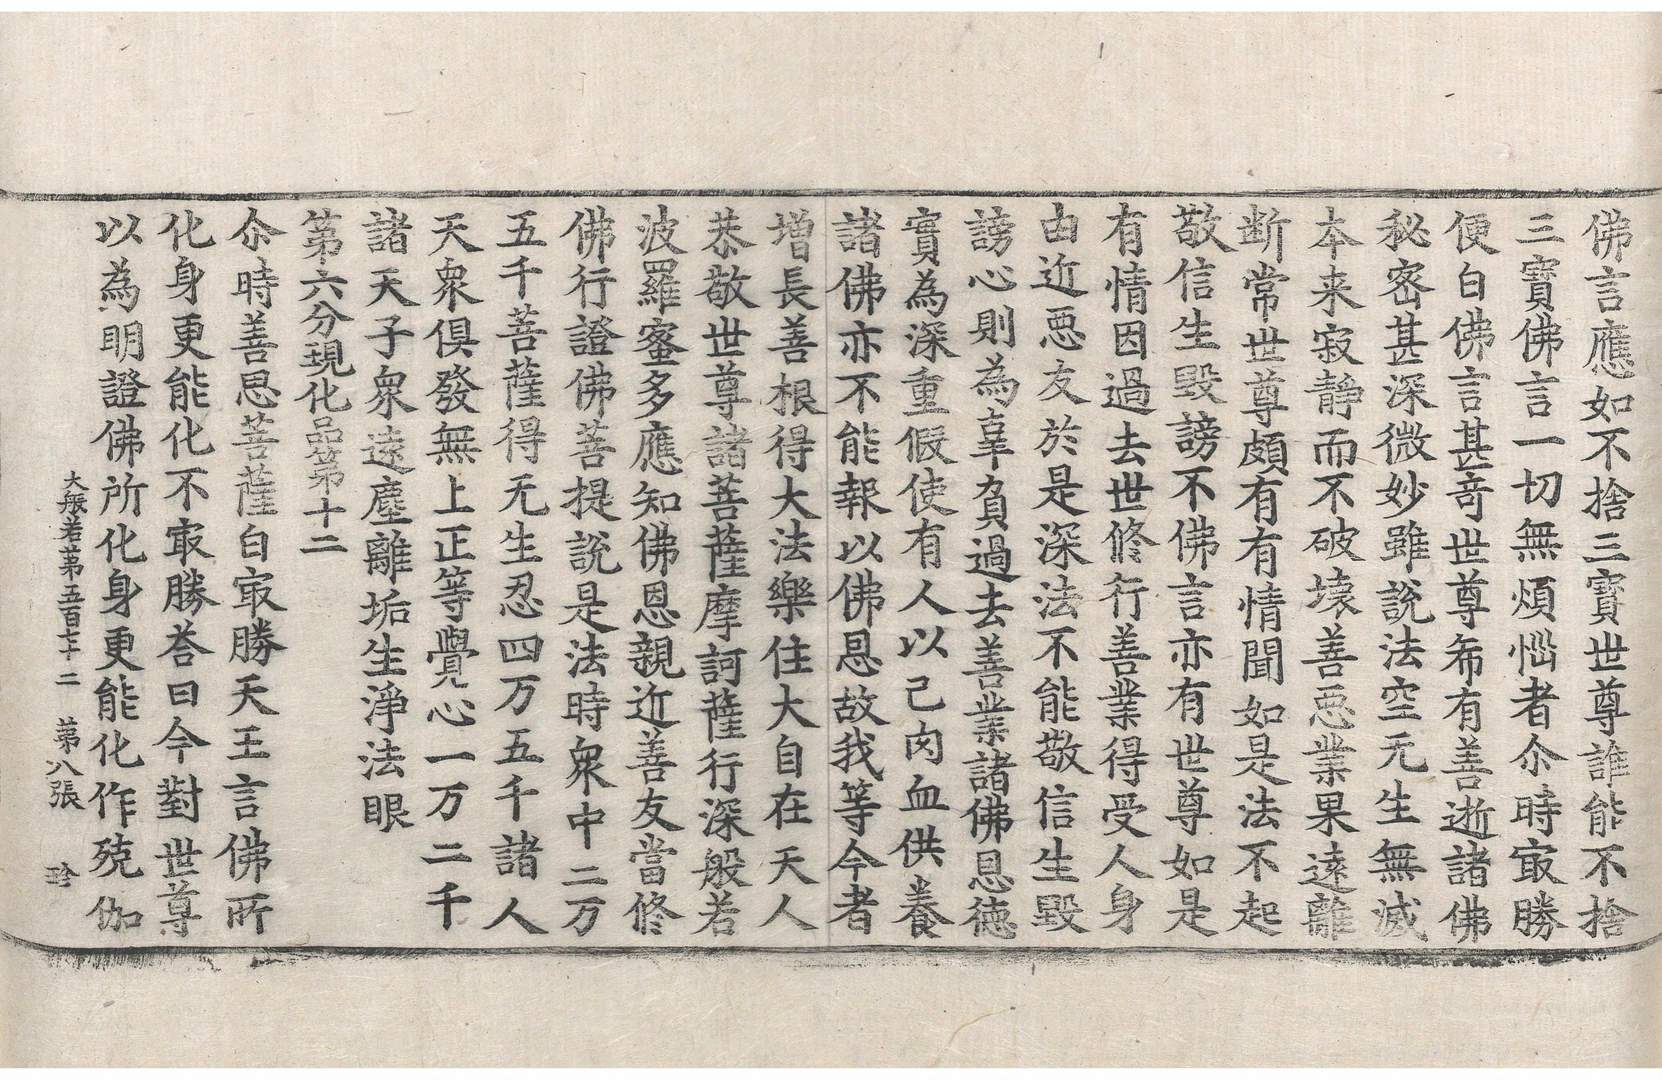 佛言應如不捨三寶世尊誰能不捨
三寶佛言一切無煩惱者尒時冣勝
便白佛言甚竒世尊希有善逝諸佛
秘密甚深微妙雖說法空无生無滅
本来寂靜而不破壞善惡業果遠離
断常世尊頗有有情聞如是法不起
敬信生毀謗不佛言亦有世尊如是
有情因過去世修行善業得受人身
由近惡友於是深法不能敬信生毀
謗心則為辜負過去善業諸佛恩德
實為深重假使有人以己肉血供養
諸佛亦不能報以佛恩故我等今者
增長善根得大法樂住大自在天人
恭敬世尊諸菩薩摩訶薩行深般若
波羅蜜多應知佛恩親近善友當修
佛行證佛菩提說是法時衆中二万
五千菩薩得无生忍四万五千諸人
天衆俱發無上正等覺心一万二千
諸天子衆遠塵離垢生淨法眼
第六分現化品第十二
尒時善思菩薩白冣勝天王言佛所
化身更能化不冣勝荅曰今對世尊
以為明證佛所化身更能化作殑伽
大般若第五百七十二 第八張 珍